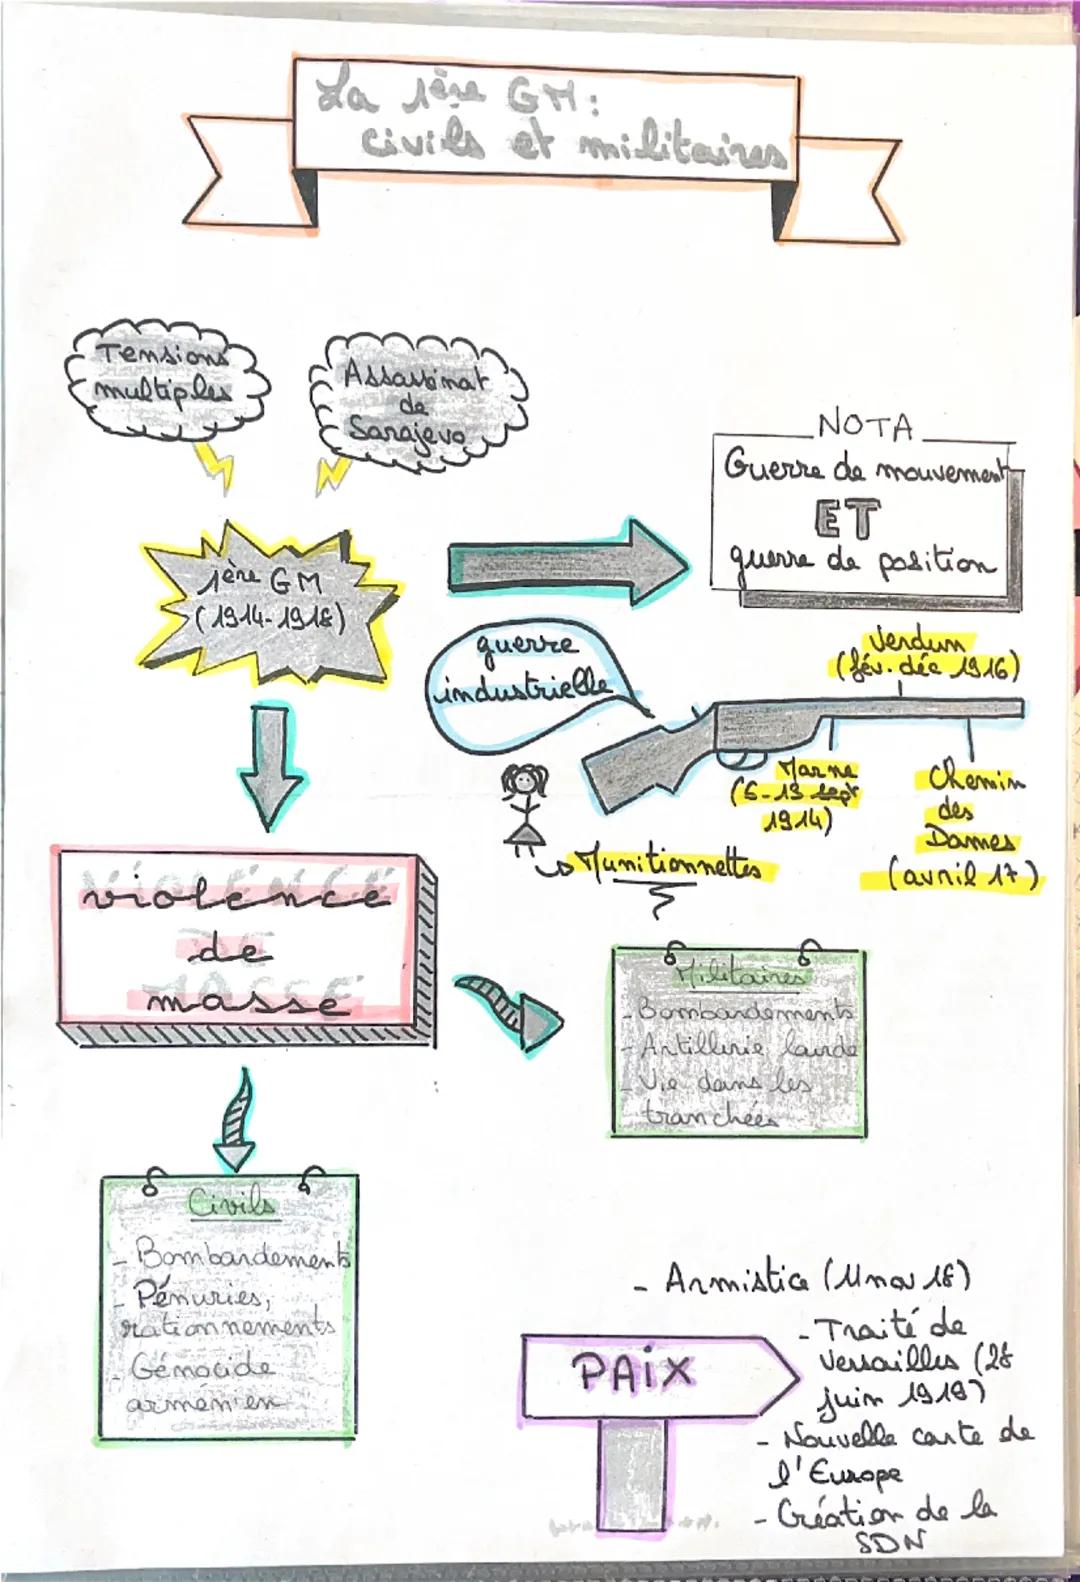 La 1ère GM:
civils et militaires
Tensions
multiples
Assassinat
de
Sarajevo
NOTA
Guerre de mouvement
ET
guerre de position
1ère GM
(1914-1918)
guerre
industrielle
Verdun
(fév. déc 1916)
Marne
(6-13 sept
1914)
Chemin
des
Dames
(avril 17)
Munitionnettes
violence
de
masse
Militaires
- Bombardements
- Artillerie lourde
- Vie dans les
tranchées
Civils
- Bombardements
- Pénuries,
rationnements
- Génocide
arménien
- Armistice (11 nov 18)
PAiX
- Traité de
Versailles (28
juin 1919)
- Nouvelle carte de
l'Europe
- Création de la
SDN